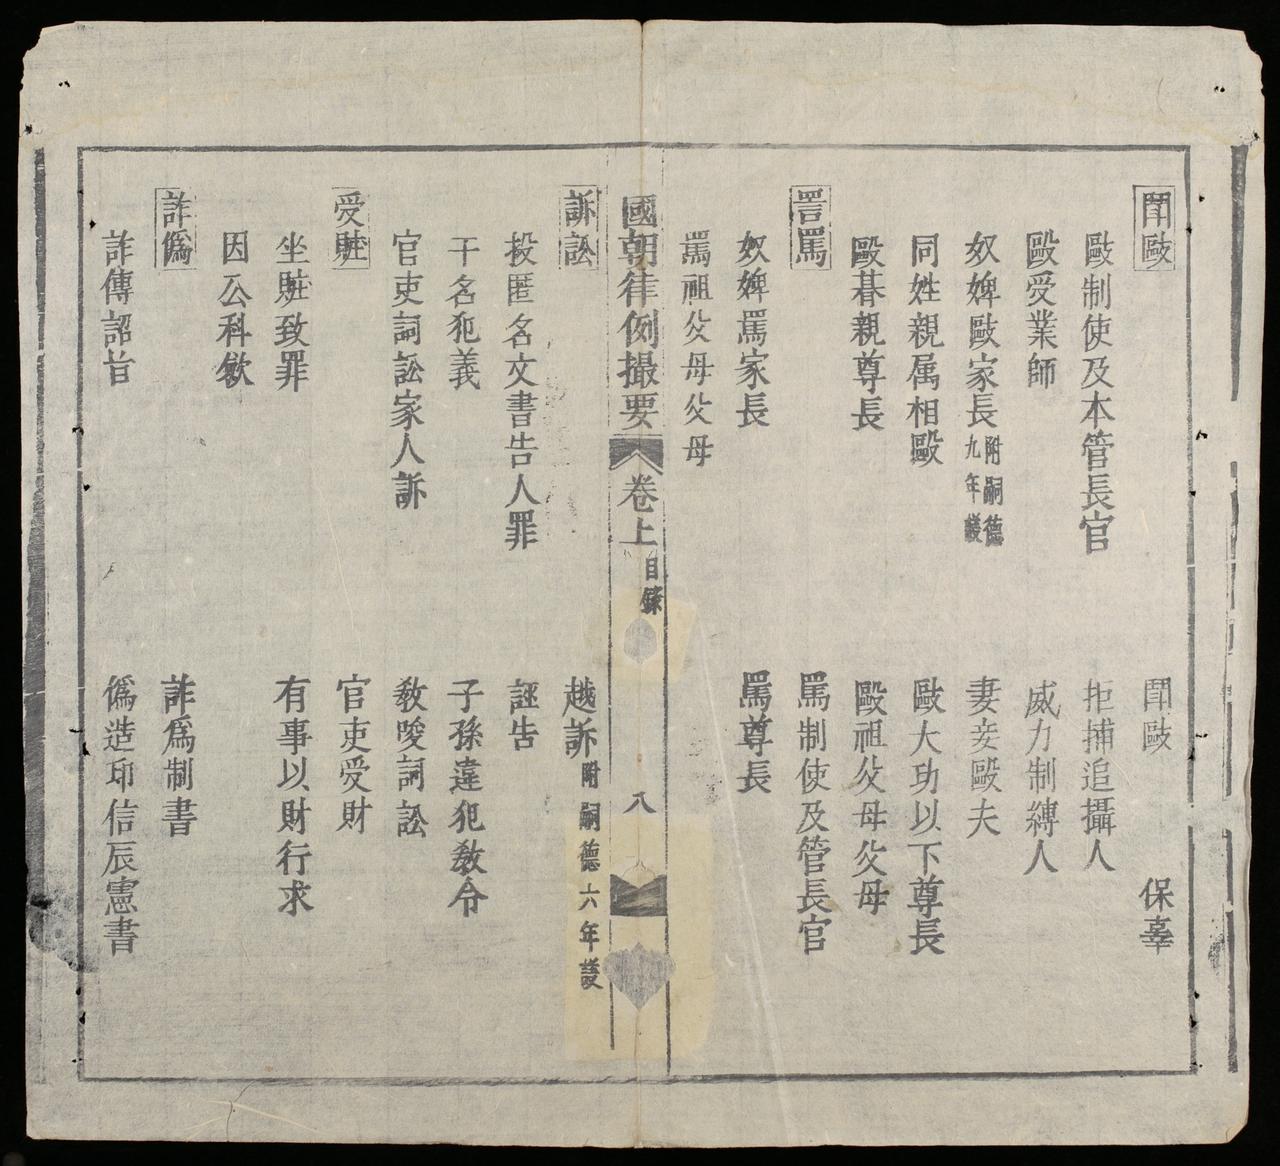 鬪毆　鬪毆　保辜
毆制使及本管長官　拒捕追攝人
毆受業師　威力制縛人
奴婢毆家長附嗣德九年議　妻妾毆夫
同姓親属相毆　毆大功以下尊長
毆朞親尊長　毆祖父母父母
詈罵　罵制使及管長官
奴婢罵家長　罵尊長
罵祖父母父母
國朝律例撮要　卷上　目錄　八
訴訟　越訴附嗣德六年議
投匿名文書告人罪　誣告
干名犯義　子孫違犯教令
官吏詞訟家人訴　教唆詞訟
受贓　官吏受財
坐贓致罪　有事以財行求
因公科斂
詐僞　詐爲制書
詐傳詔旨　僞造印信辰憲書